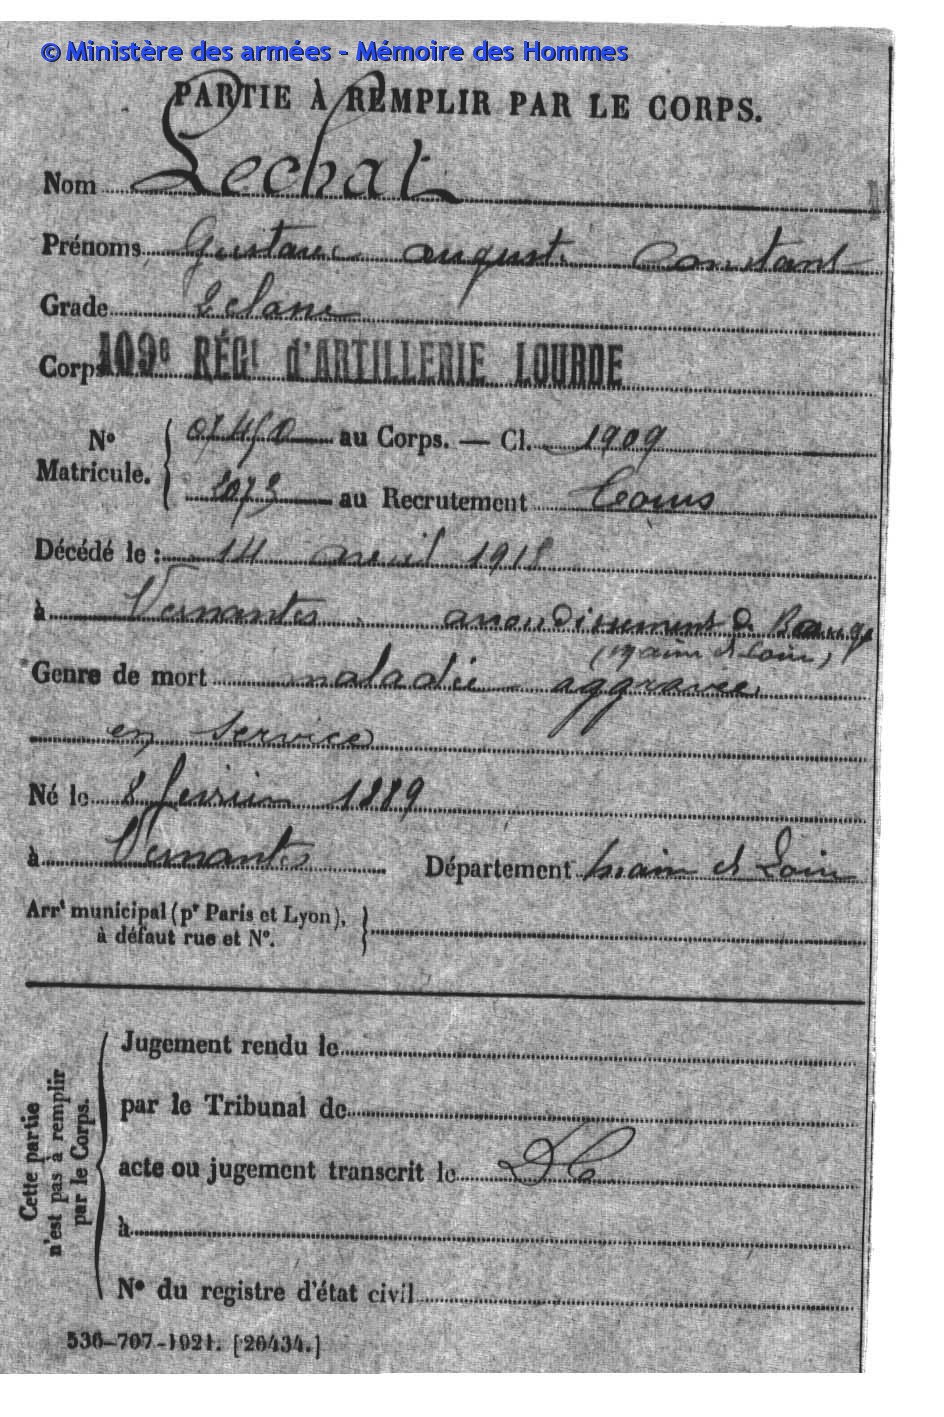 © Ministère des armées - Mémoire des Hommes
PARTIE À REMPLIR PAR LE CORPS.
Nom Lechat
Prénoms Gustave auguste Constant
Grade 2e Can
Corps 109e RÉGt d'ARTILLERIE LOURDE
No Matricule. { 07450 au Corps. — Cl. 1909
2073 au Recrutement Tours
Décédé le : 14 avril 1918
à Vernantes. arrondissement de Baugé
(Maine et Loire)
Genre de mort maladie aggravée
en service
Né le 8 février 1889
à Vernantes Département Maine et Loire
Arrt municipal (pr Paris et Lyon),
à défaut rue et No.
Cette partie
n'est pas à remplir
par le Corps.
Jugement rendu le
par le Tribunal de
acte ou jugement transcrit le DC
à
No du registre d'état civil
536-707-1921. [26434.]